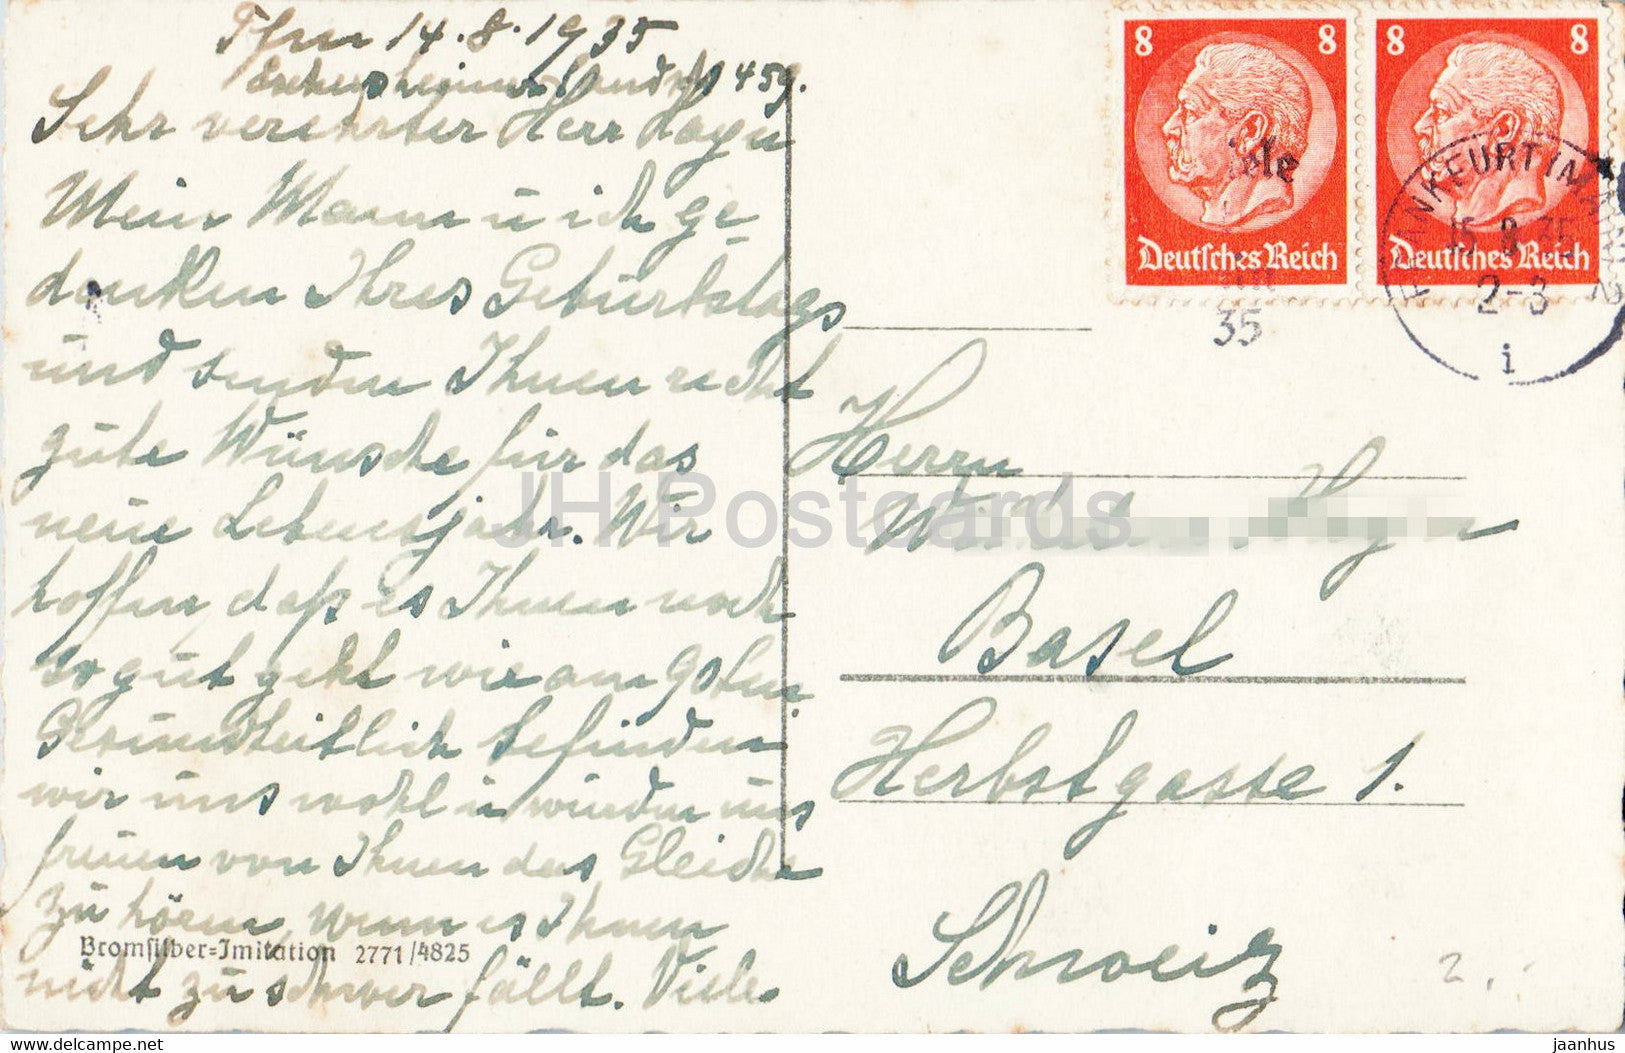 Ffm 14.8.1935
Eschersheimer Landstr 459.
Sehr verehrter Herr Hagen
Mein Mann u ich ge-
denken Ihres Geburtstags
und senden Ihnen recht
gute Wünsche für das
neue Lebensjahr. Wir
hoffen, daß es Ihnen noch
so gut geht wie am 90ten.
Gesundheitlich befinden
wir uns wohl u würden uns
freuen von Ihnen das Gleiche
zu hören, wenn es Ihnen
nicht zu schwer fällt. Viele
Bromsilber=Imitation 2771/4825
8 8
Deutsches Reich
8 8
Deutsches Reich
35
FRANKFURT (MAIN) 2
15.8.35
2-3
i
Herrn
Basel
Herbstgasse 1.
Schweiz
2.
JH Postcards
delcampe.net
jaanhus